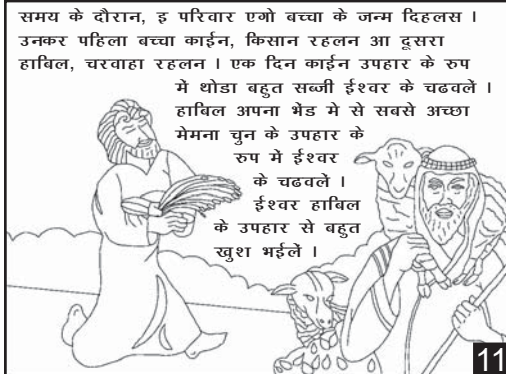 समय के दौरान, इ परिवार एगो बच्चा के जन्म दिहलस ।
उनकर पहिला बच्चा काईन, किसान रहलन आ दूसरा
हाबिल, चरवाहा रहलन । एक दिन काईन उपहार के रुप
में थोडा बहुत सब्जी ईश्वर के चढवलें ।
हाबिल अपना भेंड मे से सबसे अच्छा
मेमना चुन के उपहार के
रुप में ईश्वर
के चढवलें ।
ईश्वर हाबिल
के उपहार से बहुत
खुश भईलें ।
11